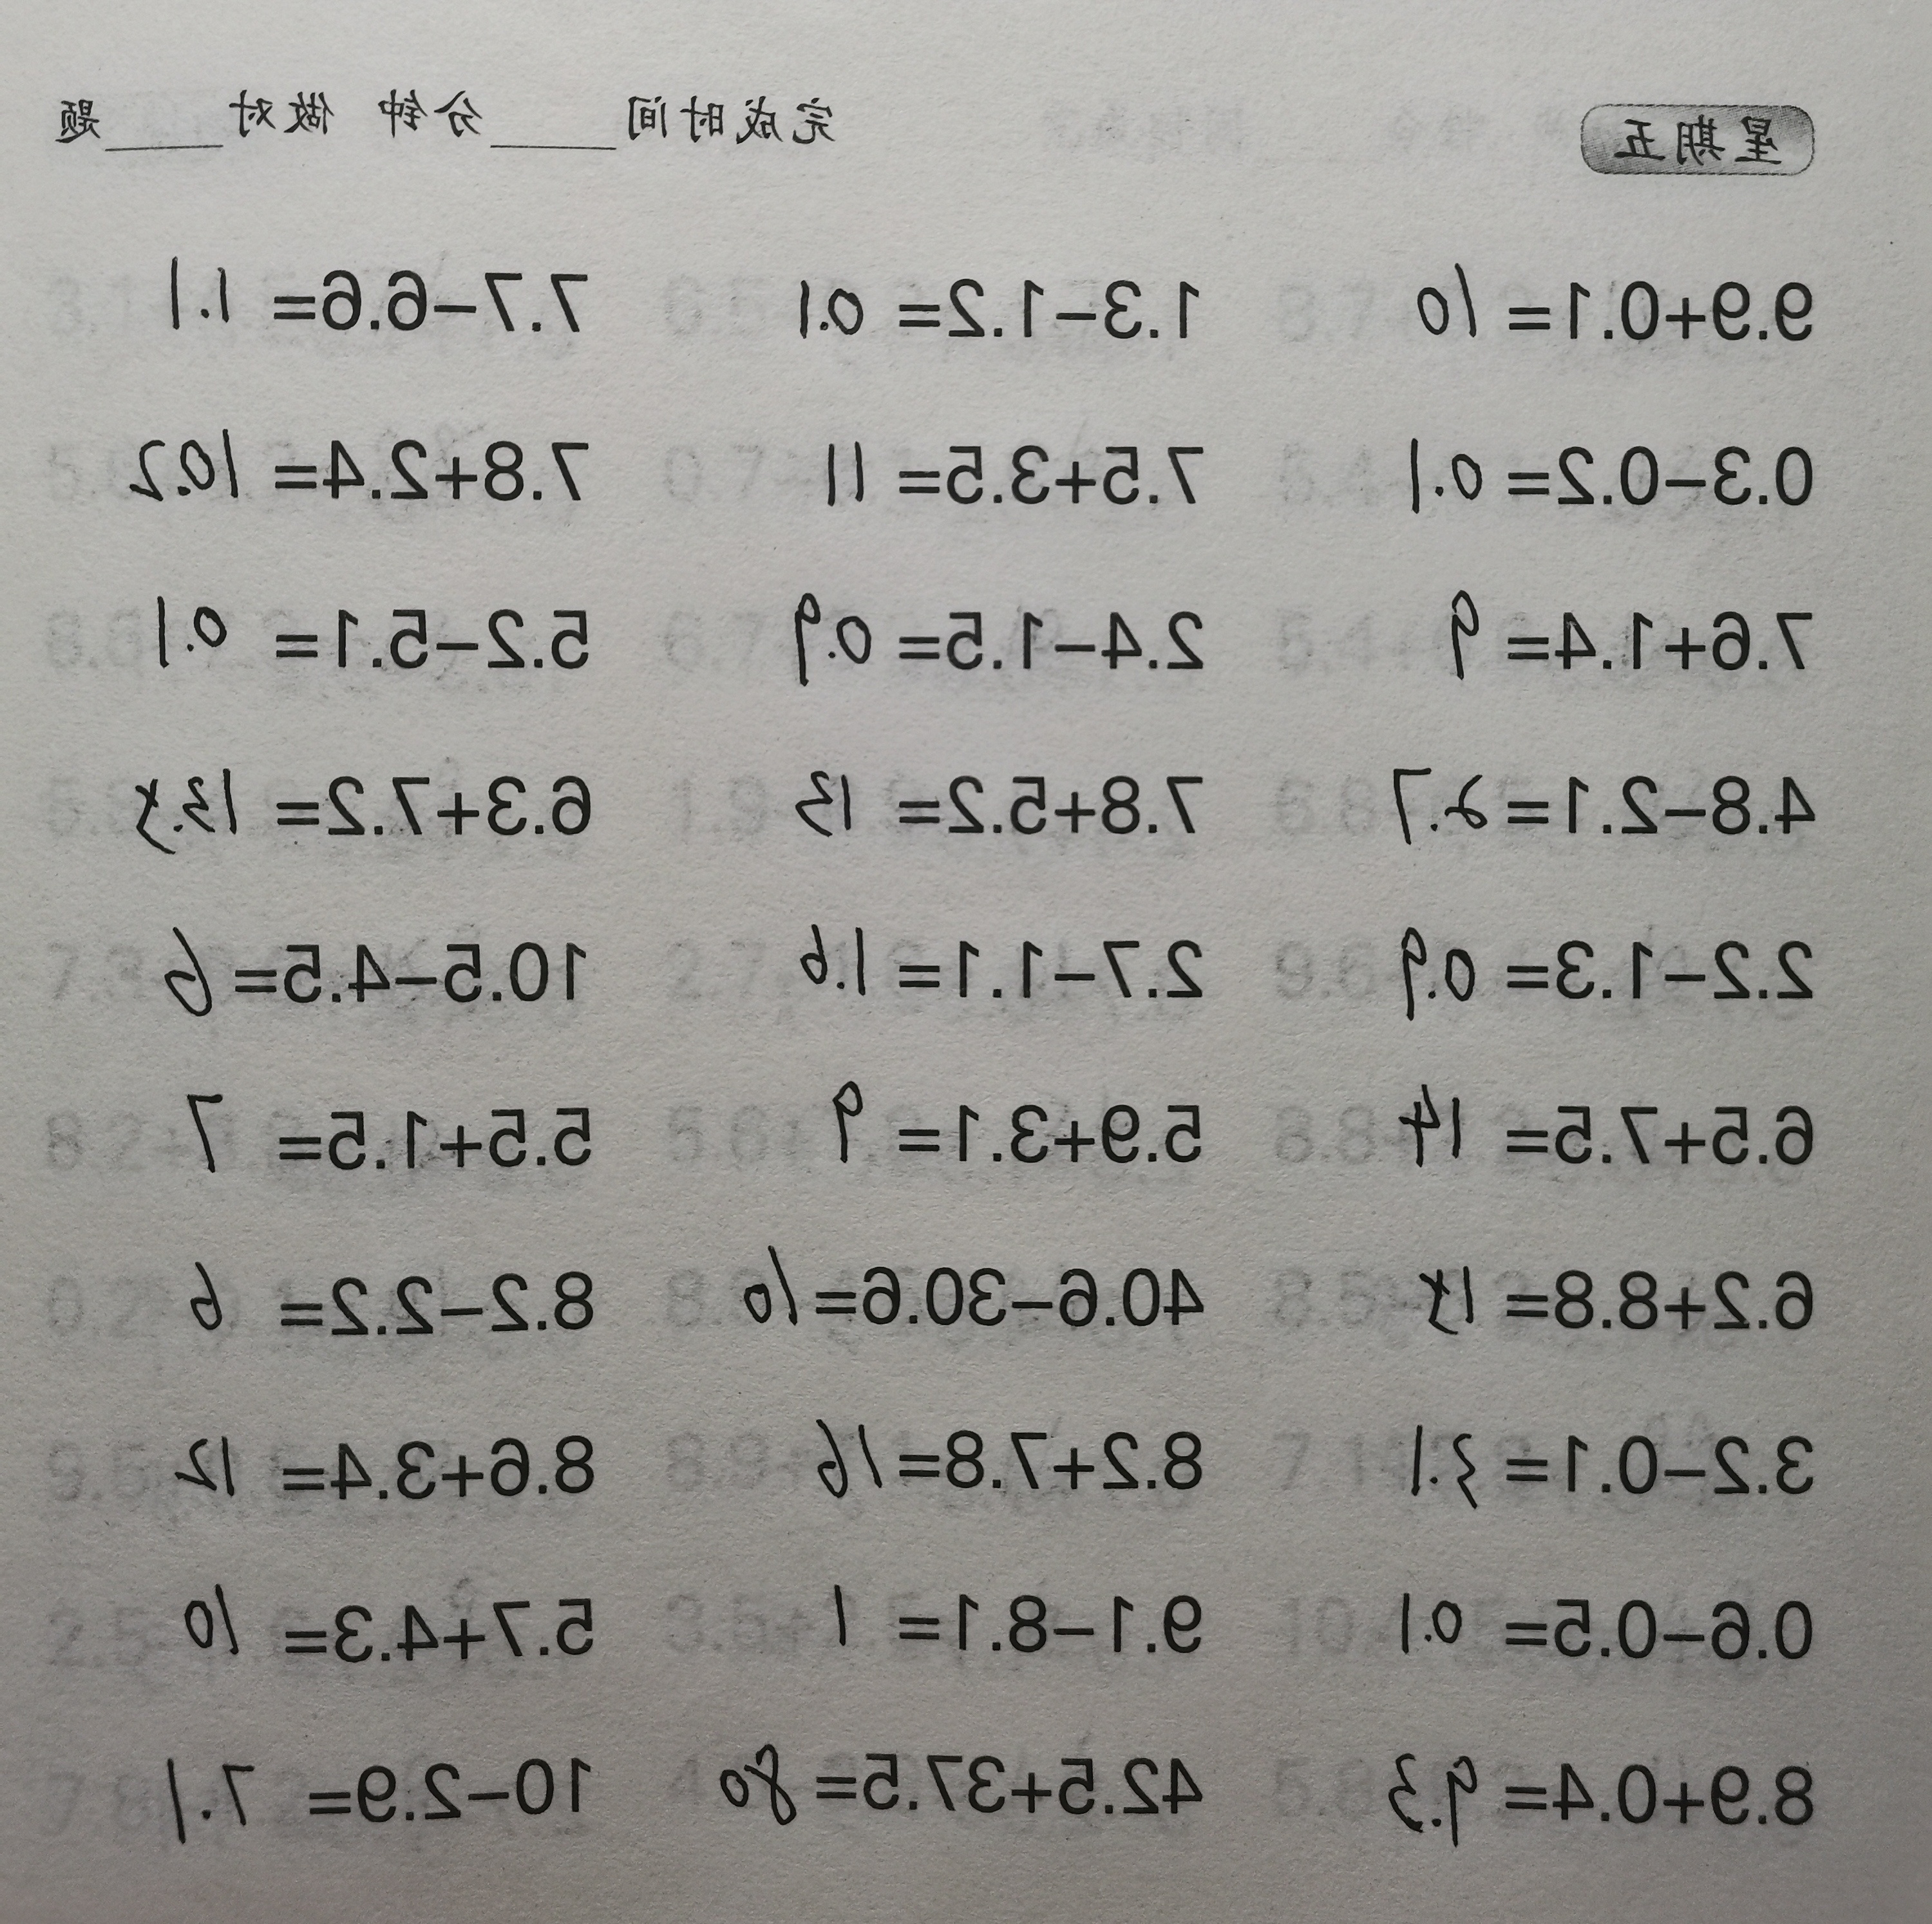 星期五 完成时间____分钟 做对____题
9.9+0.1=10 1.3-1.2=0.1 7.7-6.6=1.1
0.3-0.2=0.1 7.5+3.5=11 7.8+2.4=10.2
7.6+1.4=9 2.4-1.5=0.9 5.2-5.1=0.1
4.8-2.1=2.7 7.8+5.2=13 6.3+7.2=13.5
2.2-1.3=0.9 2.7-1.1=1.6 10.5-4.5=6
6.5+7.5=14 5.9+3.1=9 5.5+1.5=7
6.2+8.8=15 40.6-30.6=10 8.2-2.2=6
3.2-0.1=3.1 8.2+7.8=16 8.6+3.4=12
0.6-0.5=0.1 9.1-8.1=1 5.7+4.3=10
8.9+0.4=9.3 42.5+37.5=80 10-2.9=7.1